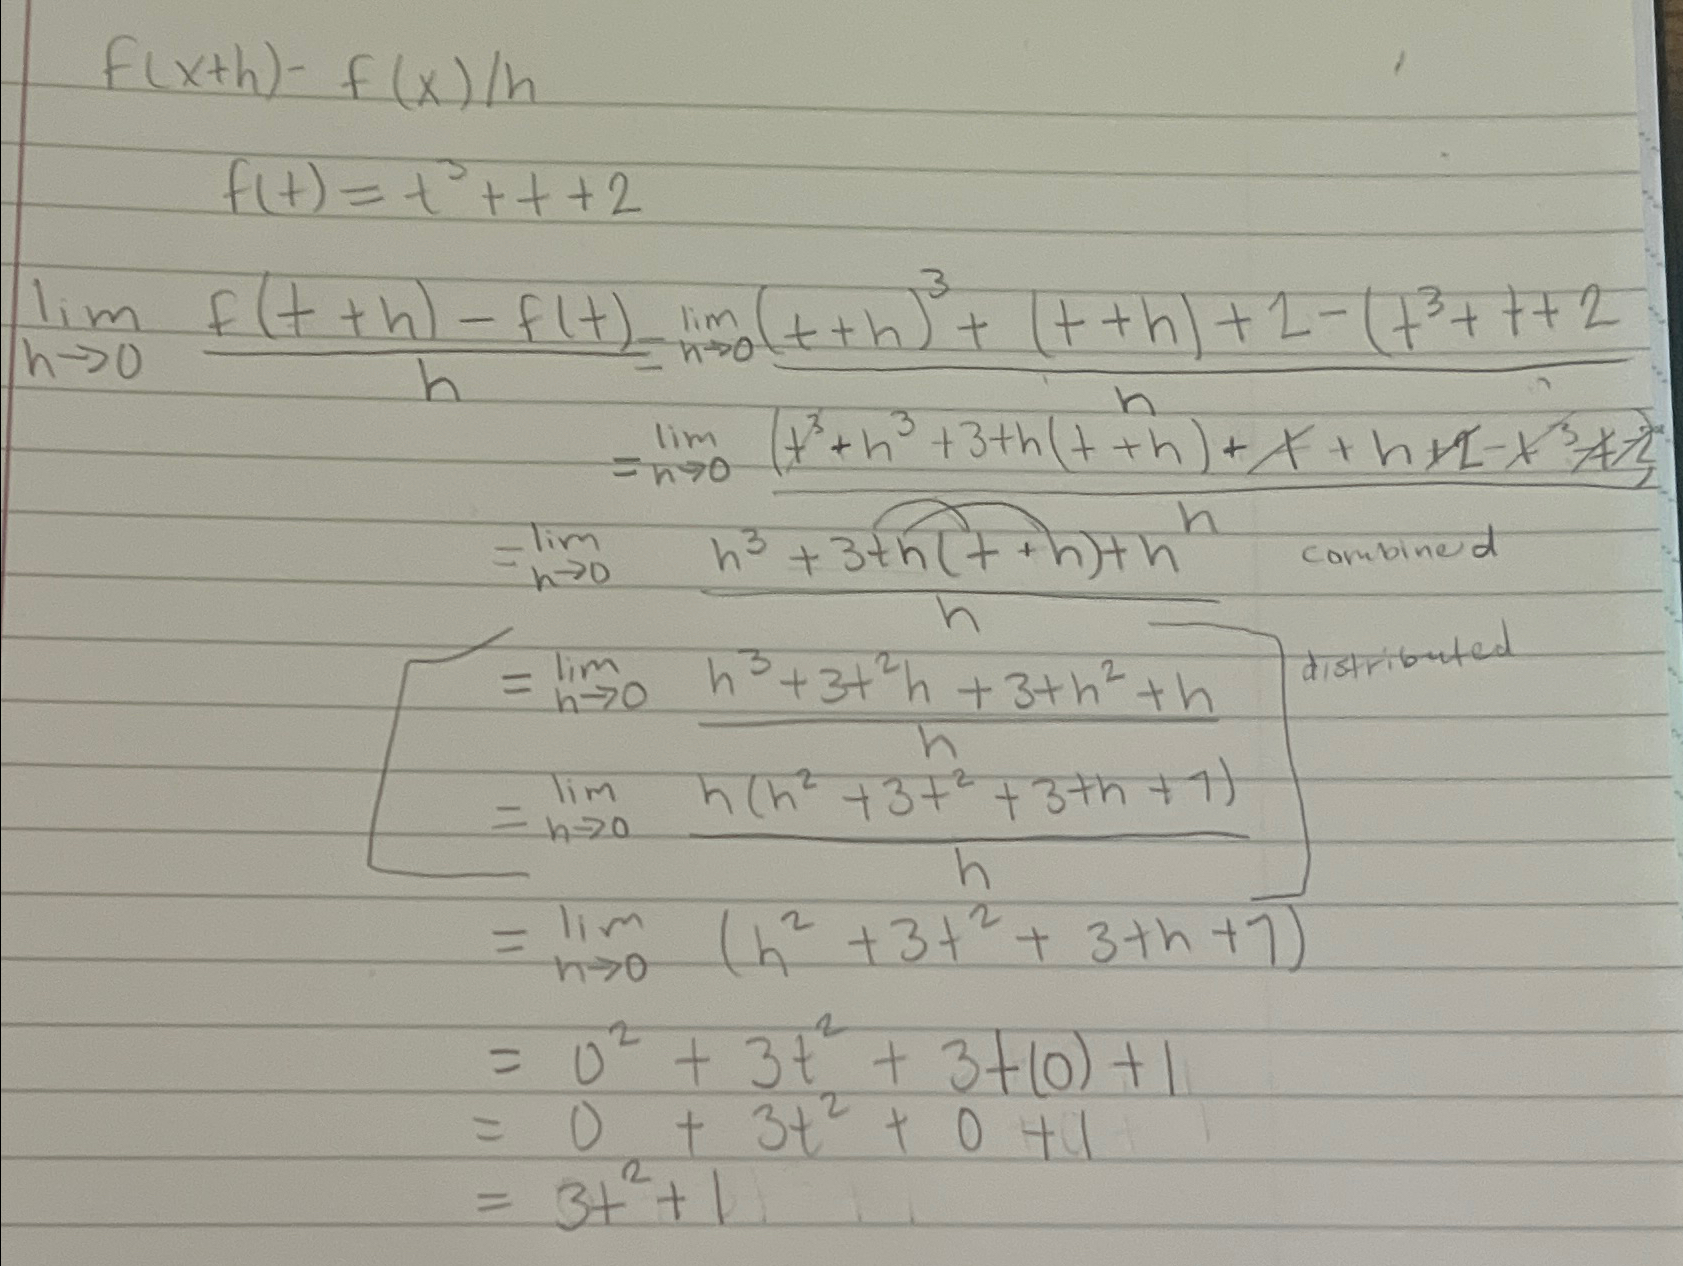 f(x+h) - f(x)/h
f(t) = t³ + t + 2
lim h→0 f(t+h) - f(t) / h = lim h→0 (t+h)³ + (t+h) + 2 - (t³ + t + 2 / h
= lim h→0 (t³ + h³ + 3th(t+h) + t + h + 2 - t³ - t - 2) / h
= lim h→0 h³ + 3th(t+h) + h / h combined
= lim h→0 h³ + 3t²h + 3th² + h / h distributed
= lim h→0 h(h² + 3t² + 3th + 1) / h
= lim h→0 (h² + 3t² + 3th + 1)
= 0² + 3t² + 3t(0) + 1
= 0 + 3t² + 0 + 1
= 3t² + 1